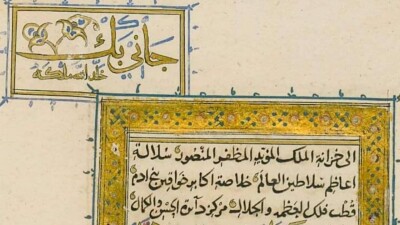 جاني بك
خلد الله ملكه
الى خزانة الملك المؤيد المظفر المنصور سلالة
اعاظم سلاطين العالم خلاصة اكابر خواقين بني ادم
قطب فلك العظمة والجلال مركز دائرة الحسن والكمال